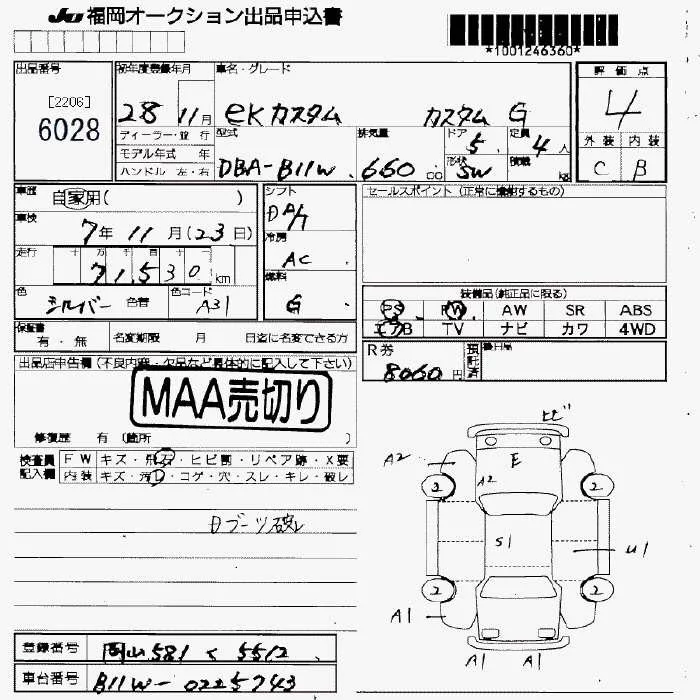 JU 福岡オークション出品申込書
*1001246360*
出品番号
[2206]
6028
初年度登録年月
28 11月
車名・グレード
eKカスタム カスタム G
評価点
4
外装 内装
C B
ディーラー・並行
モデル年式 年
ハンドル 左・右
型式
DBA-B11W
排気量
660 cc
ドア
5
形状
SW
定員
4人
積載
kg
車歴
自家用( )
車検
7年 11月(23日)
走行
十 万 千 百 十 一
71,530 km
色
シルバー 色替
色コード
A31
シフト
DA/7
冷房
AC
燃料
G
セールスポイント(正常に機能するもの)
装備品(純正品に限る)
PS PW AW SR ABS
エアB TV ナビ カワ 4WD
保証書
有・無
名変期限 月 日迄に名変できる方
R券
8060円
預託済
後日品
出品店申告欄(不良内容・欠品など具体的に記入して下さい)
MAA売切り
修復歴 有(箇所 )
検査員記入欄
FW キズ・飛石・ヒビ割・リペア跡・X要
内装 キズ・汚れ・コゲ・穴・スレ・キレ・破レ
Dブーツ破レ
ヒビ
A2 E
2 A2 2
S1 U1
2 2
A1 A1
A1 A1
登録番号 岡山581 く 5512
車台番号 B11W-0225743